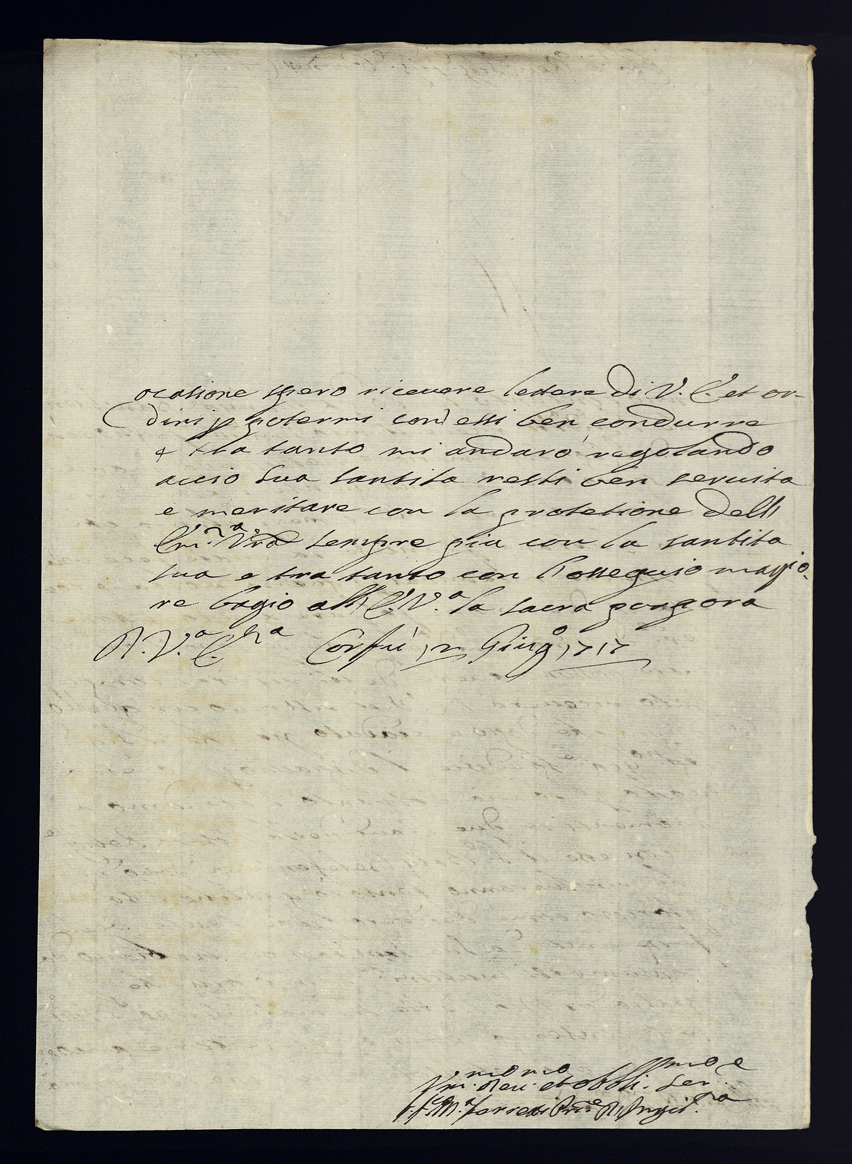 ocasione spero ricevere lettere di V. E. et or-
dini p potermi con essi ben condurre
e tra tanto mi andarò regolando
accio sua santita resti ben servita
e meritare con la protetione dell
Em.ª Vrã sempre gia con la santita
sua e tra tanto con l'ossequio maggio-
re bagio all E. V.ª la sacra porpora
D. V.ª E.za Corfù 12 Giugº 1717
Hm. Dev. et obbli. ser.